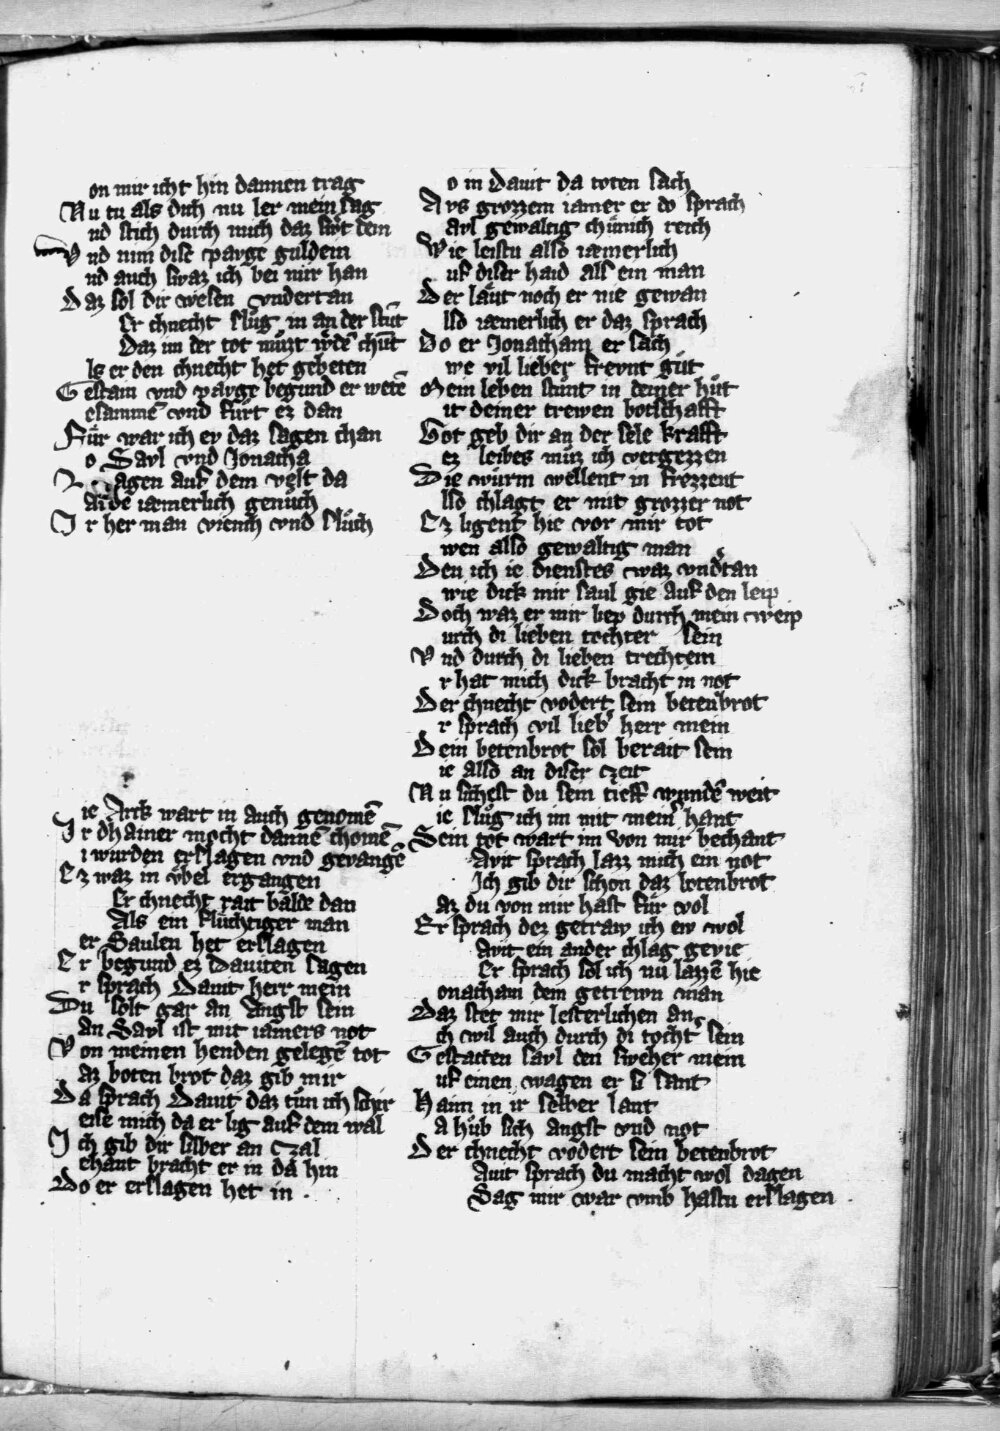 on mir icht hin dannen trag
Nu tu als dich nu ler mein sag
nd stich durch mich daz swͤrt dein
Vnd nim dise pavge guldein
nd auch swaz ich bei mir han
Daz sol dir wesen vndertan
Er chnecht slůg in an der stůt
Daz im der tot můzt wˀdē chūt
ls er den chnecht het gebeten
Gestain vnd pavge begund er wetē
esammē vnd fůrt ez dan
Fůr war ich ev daz sagen chan
o Savl vnd Jonatha
lagen auf dem velt da
aide iæmerlich genůch
Ir her man viench vnd slůch
ie Arck wart in auch genomē
Ir dhainer mocht dannē chomē
i wurden erslagen vnd gevangē
Ez waz in vͤbel ergangen
Er chnecht rait balde dan
Als ein fluchtiger man
er Saulen het erslagen
Er begund ez Dauiten sagen
r sprach Dauit herr mein
Du solt gar an angst sein
an Savl ist mit iamers not
Von meinen henden gelegē tot
az boten brot daz gib mir
Da sprach Dauit daz tůn ich schir
eise mich da er lig auf dem wal
Ich gib dir silber an czal
ehant bracht er in da hin
Do er erslagen het in .
o in Dauit da toten sach
Avs grozzem iamer er do sprach
avl gewaltig chůnich reich
Wie leistu also iæmerlich
uf diser haid als ein man
Der laͤut noch er nie gewan
lso iæmerlich er daz sprach
Do er Jonatham er sach
we vil lieber frevnt gůt
Mein leben stůnt in deiner hůt
it deiner trewen botschafft
Got geb dir an der sele krafft
ez leibes můz ich vergezzen
Die wůrm wellent in frezzent
lso chlagt er mit grozzer not
Ez ligent hie vor mir tot
wen also gewaltig man
Den ich ie dienstes waz vndˀtan
wie dick mir saul gie auf den leip
Doch waz er mir liep durch mein weip
urch di lieben tochter sein
Vnd durch di lieben trechtein
r hat mich dick bracht in not
Der chnecht vodert sein betenbrot
r sprach vil liebˀ herr mein
Dein betenbrot sol berait sein
ie also an diser czeit
Nu sichest du sein tieff wundē weit
ie slůg ich im mit meinˀ hant
Sein tot wart im von mir bechant
Avit sprach lazz mich ein not
Ich gib dir schon daz botenbrot
az du von mir hast fůr vol
Er sprach dez getraw ich ew wol
Avit ein ander chlag gevie
Er sprach sol ich nu lazzē hie
onatham dem getrewn man
Daz stet mir lesterlichen an
ch wil auch durch di tochtˀ sein
Gestatten savl den sweher mein
uf einen wagen er si sant
Haim in ir selber lant
a hůb sich angst vnd not
Der chnecht vodert sein betenbrot
Auit sprach du macht wol dagen
Sag mir war vmb hastu erslagen